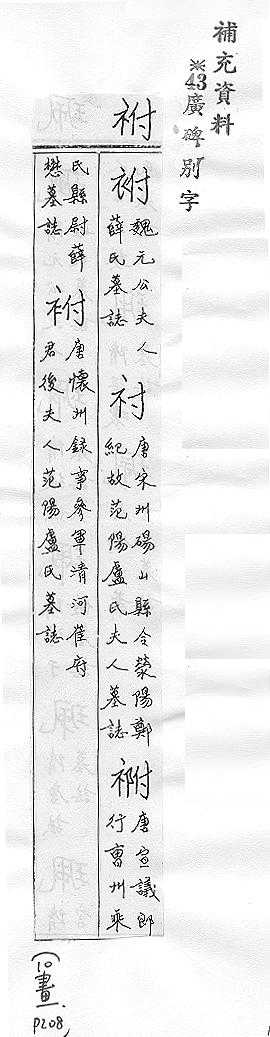 補充資料
※43廣碑別字
祔
祔 魏元公夫人薛氏墓誌 祔 唐宋州碭山縣令滎陽鄭紀故范陽盧氏夫人墓誌 祔 唐宣議郎行曹州乘
氏縣尉薛懋墓誌 祔 唐懷州錄事參軍清河崔府君後夫人范陽盧氏墓誌
(10畫
P208)